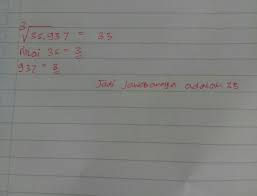 ∛35.937 = 33
Nilai 35 = 3
937 = 3
Jadi jawabannya adalah 33